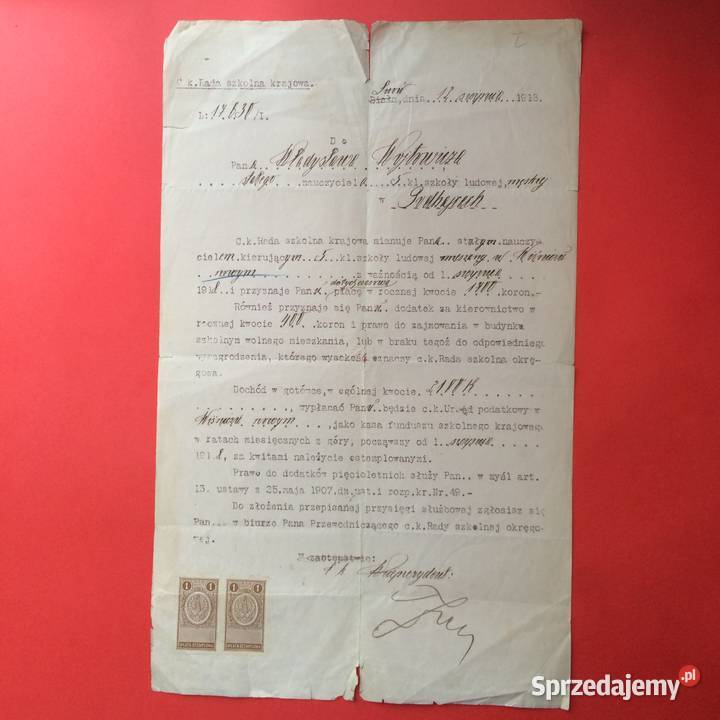 C.k.Rada szkolna krajowa.
Biała,dnia..12 sierpnia...1918.
L: 17.630/I.
Do
Pana Władysława Wojtowicza
stałego....nauczyciela...5.kl.szkoły ludowej, męskiej
w
C.k.Rada szkolna krajowa mianuje Pana stałym nauczy-
cielem kierującym 5.kl.szkoły ludowej mieszanej w Wiśniczu
nowym z ważnością od 1 sierpnia
1918 i przyznaje Panu dotychczasową płacę w rocznej kwocie 1700 koron.-
Również przyznaje się Panu dodatek za kierownictwo w
rocznej kwocie 400 koron i prawo do zajmowania w budynku
szkolnym wolnego mieszkania, lub w braku tegoż do odpowiedniego
wynagrodzenia, którego wysokość oznaczy c.k.Rada szkolna okrę-
gowa.
Dochód w gotówce,w ogólnej kwocie. 2180 K
, wypłacać Panu będzie c.k.Urząd podatkowy w
Wiśniczu nowym ...,jako kasa funduszu szkolnego krajowego
w ratach miesięcznych z góry, począwszy od 1 sierpnia
1918, za kwitami należycie ostemplowanymi.
Prawo do dodatków pięcioletnich służy Pan.. w myśl art.
13. ustawy z 25.maja 1907.dz.ust.i rozp.kr.Nr.49.-
Do złożenia przepisanej przysięgi służbowej zgłosisz się
Pan... w biurze Pana Przewodniczącego c.k.Rady szkolnej okręgo-
wej.
W zastępstwie:
Wiceprezydent:
1 1 1 1
OPŁATA STEMPLOWA OPŁATA STEMPLOWA
Sprzedajemy.pl